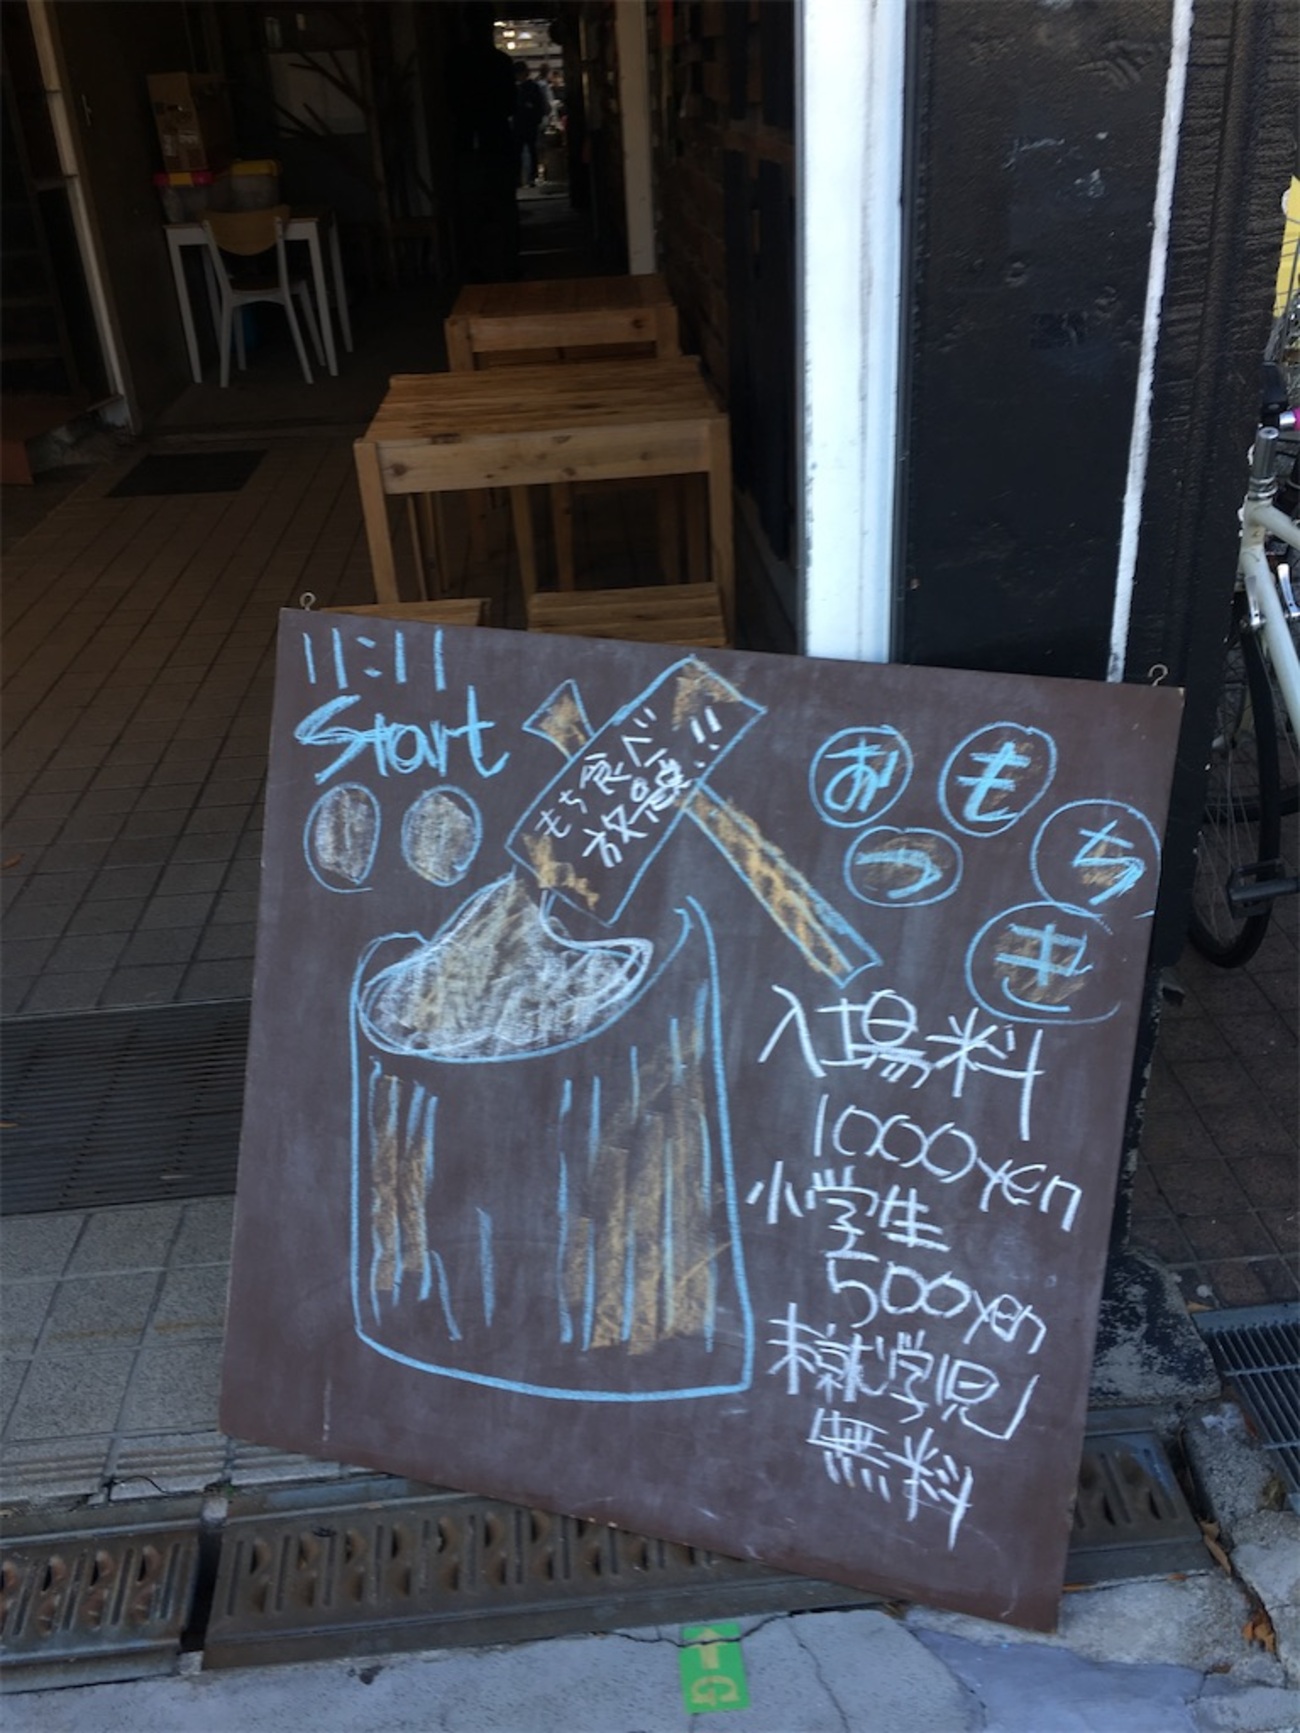 11:11
Start
もち食べ
放題!!
おもち
つき
入場料
1000yen
小学生
500yen
未就学児
無料
G